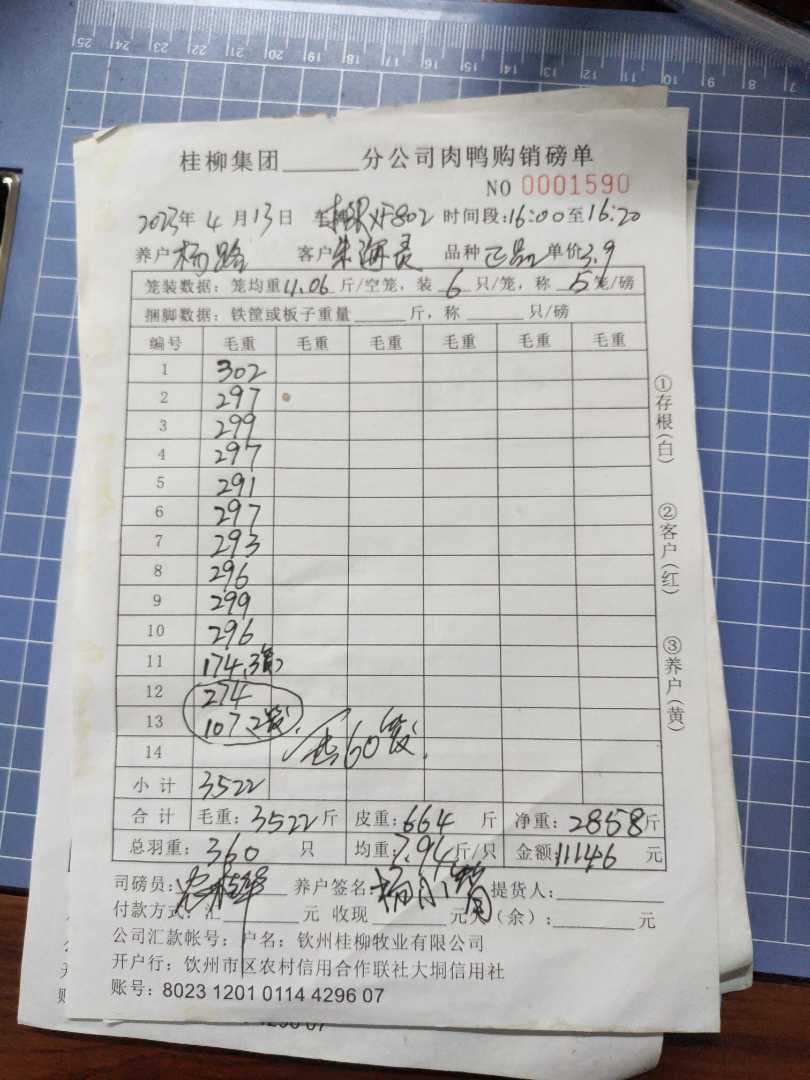 桂柳集团______分公司肉鸭购销磅单
NO 0001590
2023年 4 月 13 日 车 XF802 时间段:16:00至16:20
养户 杨路 客户 朱海灵 品种 正品 单价3.9
笼装数据：笼均重11.06斤/空笼，装 6 只/笼，称 5 笼/磅
捆脚数据：铁筐或板子重量______斤，称______只/磅
编号 毛重 毛重 毛重 毛重 毛重 毛重
1 302
2 297
3 299
4 297
5 291
6 297
7 293
8 296
9 299
10 296
11 174,3
12 274
13 107,2
14 60
小计 3522
合计 毛重：3522斤 皮重：664 斤 净重：2858斤
总羽重：360 只 均重：7.94斤/只 金额：11146 元
司磅员： 养户签名：杨 提货人：
付款方式：汇______元 收现______元 （余）：______元
公司汇款帐号：户名：钦州桂柳牧业有限公司
开户行：钦州市区农村信用合作联社大垌信用社
账号：8023 1201 0114 4296 07
①存根(白)
②客户(红)
③养户(黄)
25 24 23 22 21 20 19 18 17 16 15 14 13 12 11 10 9 8 7